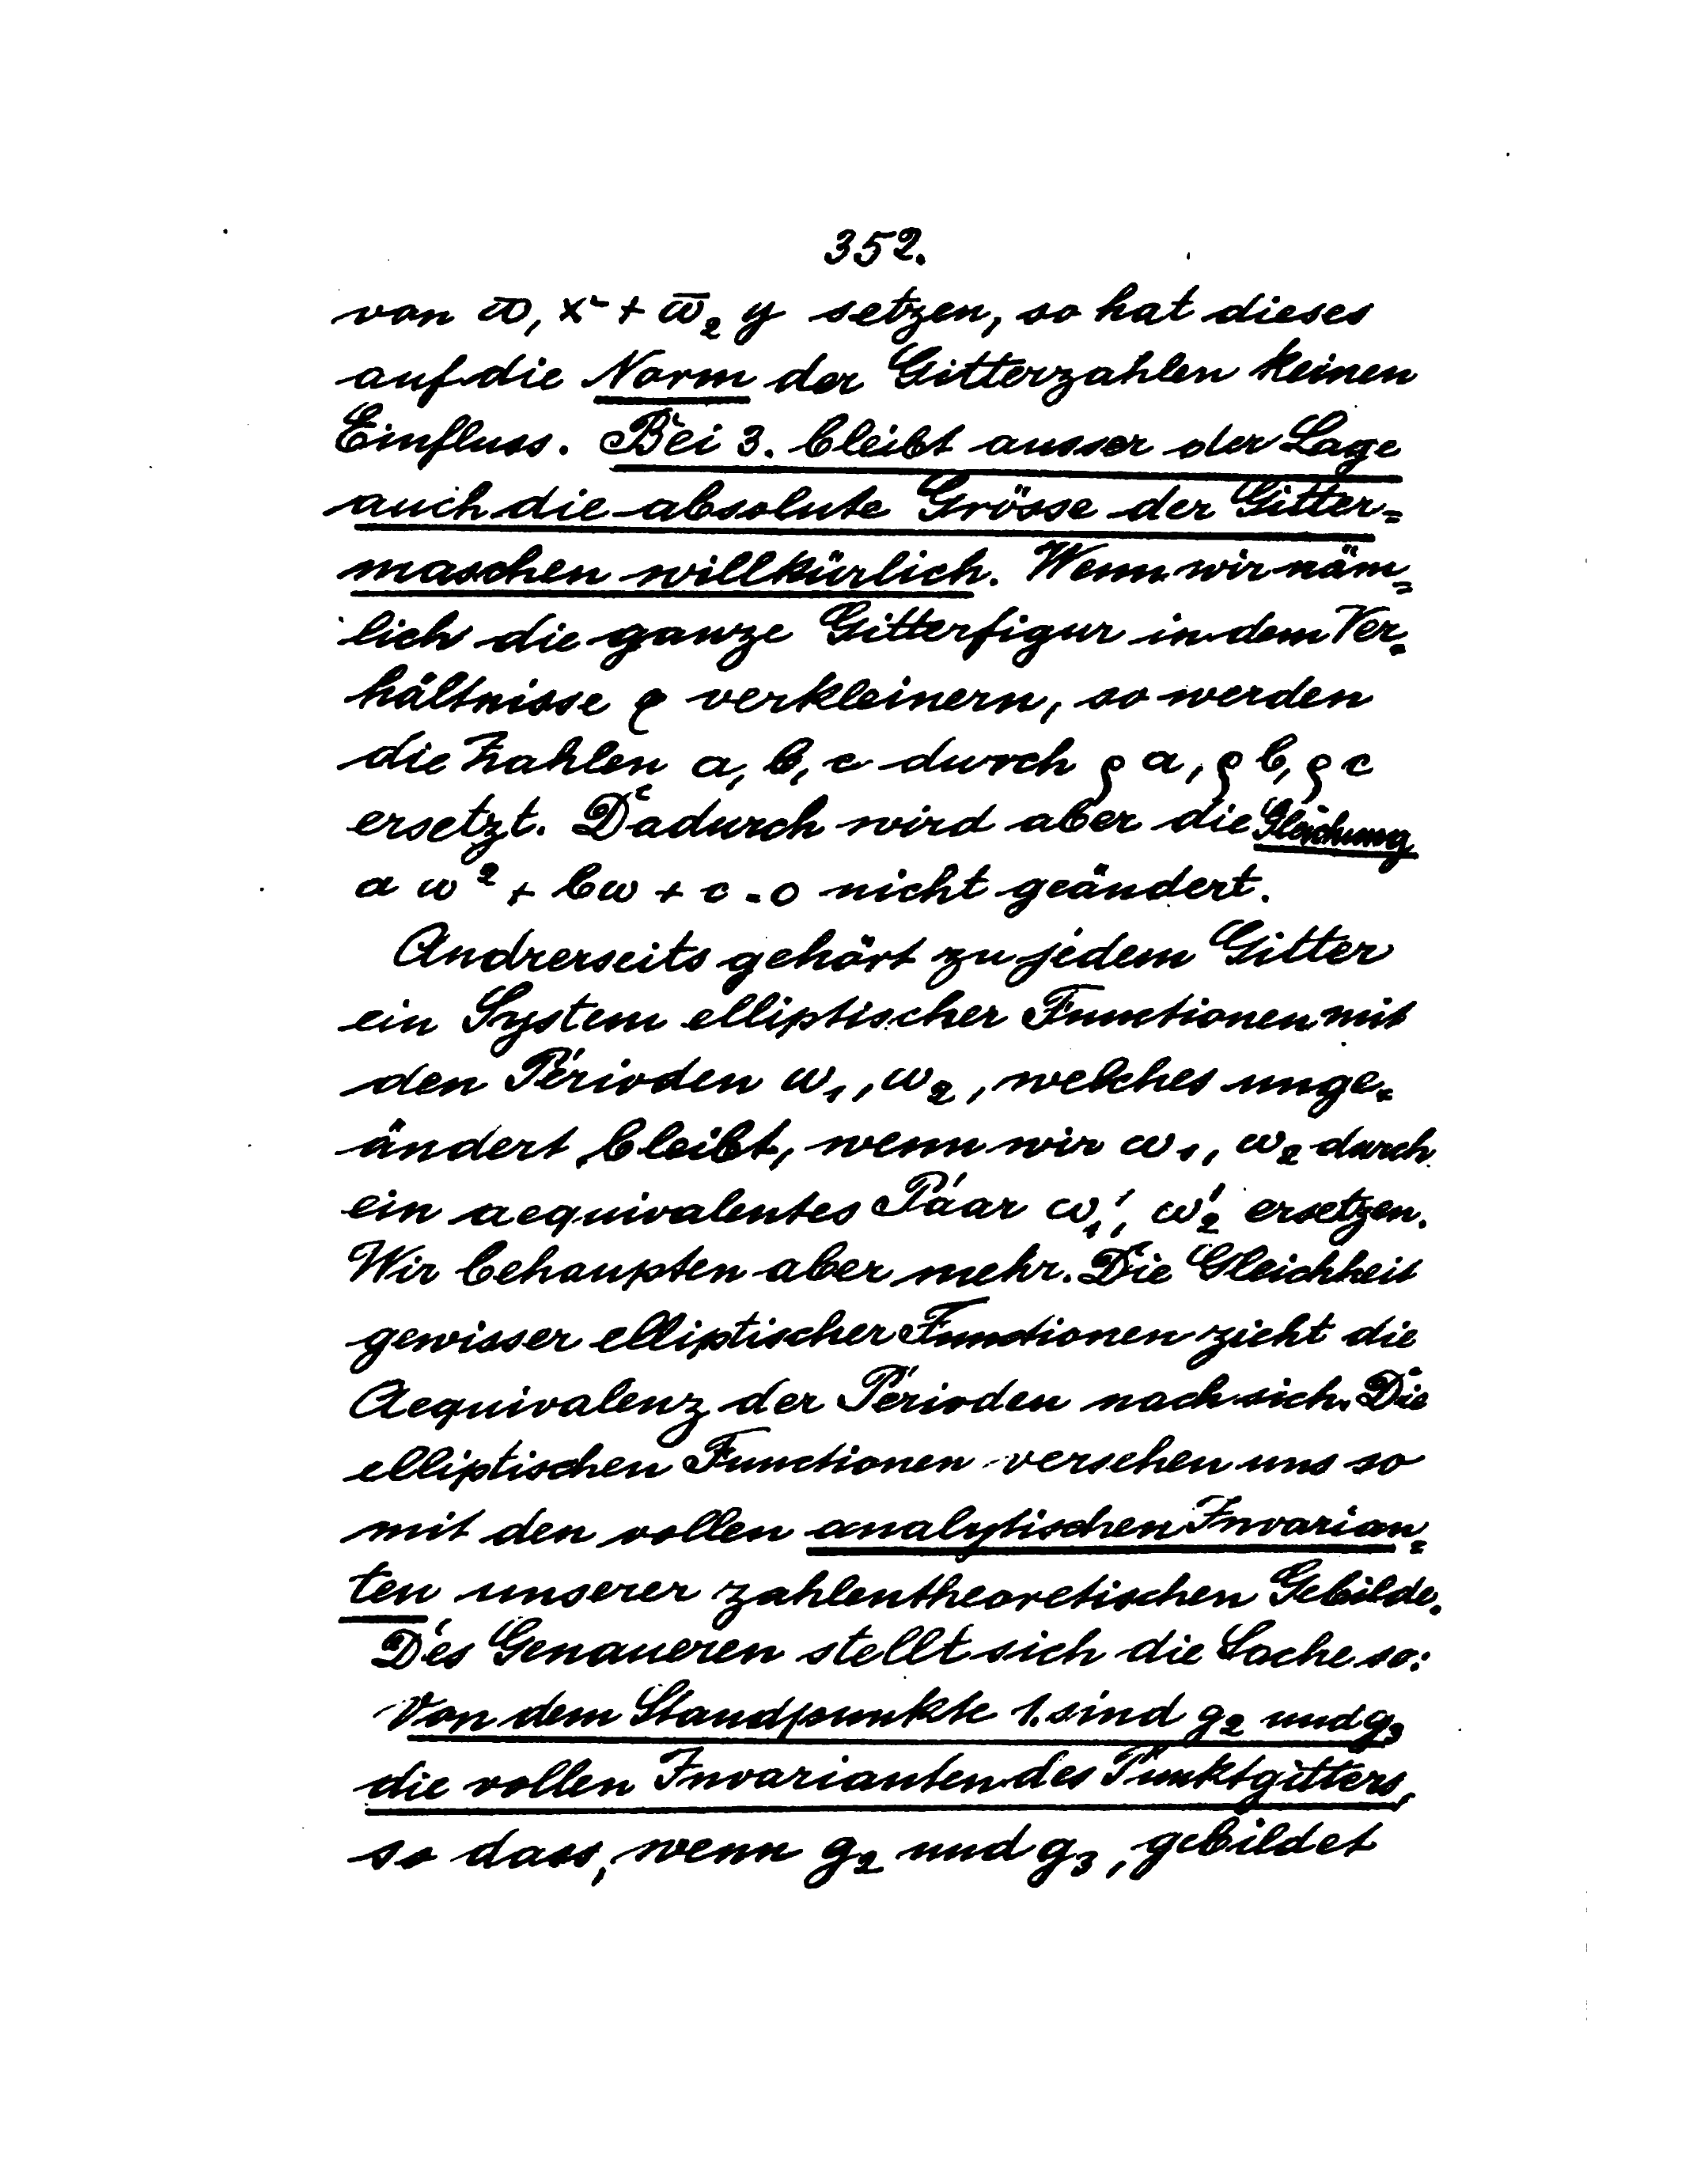 352.
von ω̅, x + ω̅₂ y setzen, so hat dieses
auf die Norm der Gitterzahlen keinen
Einfluss. Bei 3. bleibt ausser der Lage
auch die absolute Grösse der Gitter=
maschen willkürlich. Wenn wir näm=
lich die ganze Gitterfigur in dem Ver=
hältnisse ρ verkleinern, so werden
die Zahlen a, b, c durch ρ a, ρ b, ρ c
ersetzt. Dadurch wird aber die Gleichung
a ω² + bω + c = 0 nicht geändert.
Andrerseits gehört zu jedem Gitter
ein System elliptischer Functionen mit
den Perioden ω₁, ω₂, welches unge=
ändert bleibt, wenn wir ω₁, ω₂ durch
ein aequivalentes Paar ω₁', ω₂' ersetzen.
Wir behaupten aber mehr. Die Gleichheit
gewisser elliptischer Functionen zieht die
Aequivalenz der Perioden nach sich. Die
elliptischen Functionen versehen uns so
mit den vollen analytischen Invarian=
ten unserer zahlentheoretischen Gebilde.
Des Genaueren stellt sich die Sache so:
Von dem Standpunkte 1. sind g₂ und g₃
die vollen Invarianten des Punktgitters,
so dass, wenn g₂ und g₃, gebildet